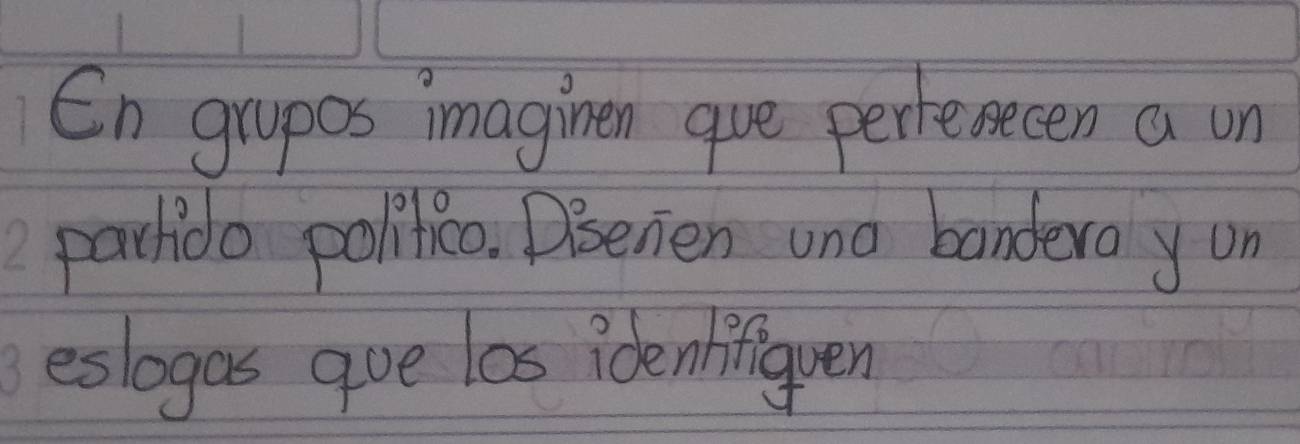 En grupos imaginen que pertenecen a un
partido politico. Diseñen una bandera y un
eslogas que los identifiquen